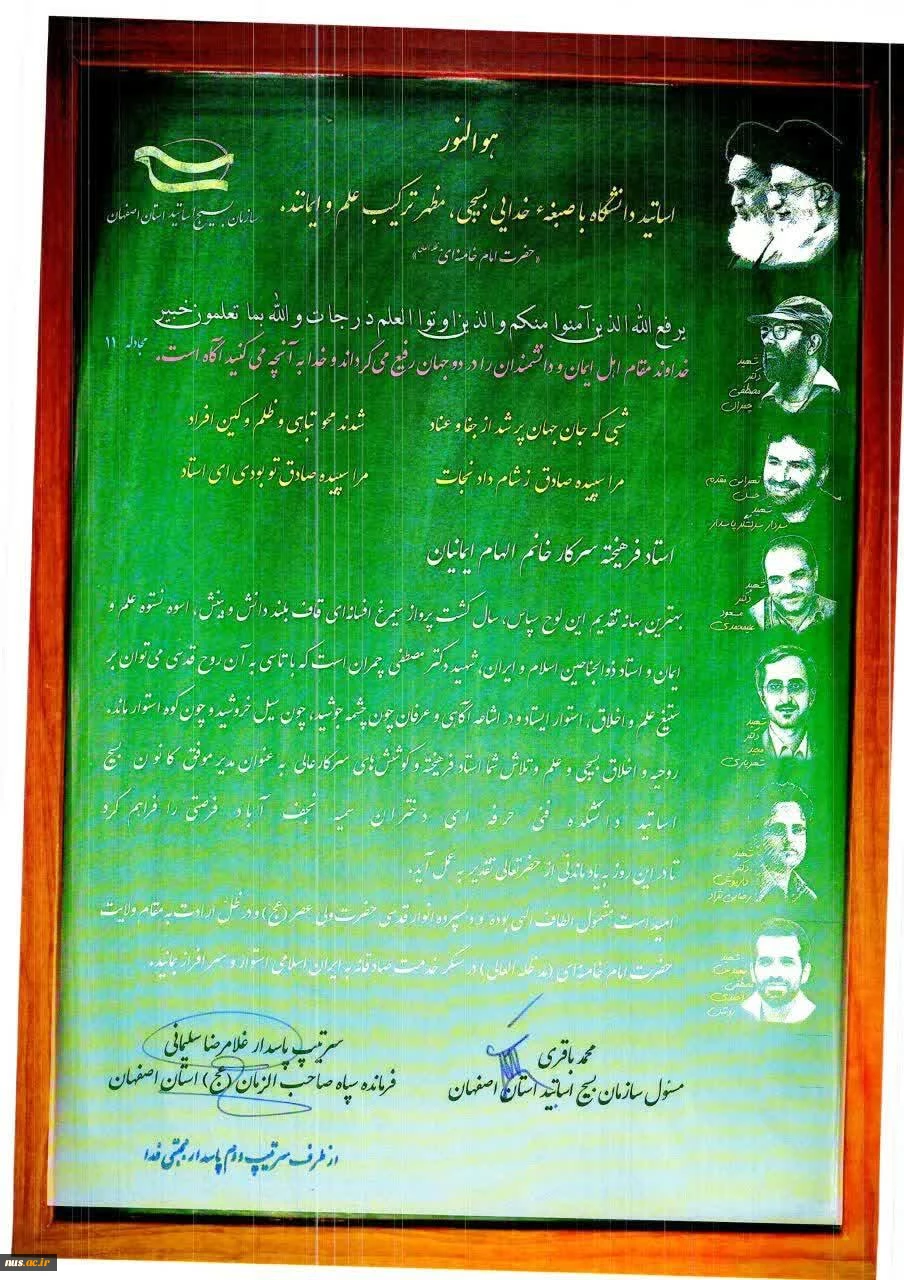 هوالنور
سازمان بسیج اساتید استان اصفهان
اساتید دانشگاه با صبغهٔ خدایی بسیجی، مظهر ترکیب علم و ایمانند.
«حضرت امام خامنه‌ای مدظله‌العالی»
یرفع الله الذین آمنوا منکم والذین اوتوا العلم درجات و الله بما تعلمون خبیر
مجادله ۱۱
خداوند مقام اهل ایمان و دانشمندان را در دو جهان رفیع می‌گرداند و خدا به آنچه می‌کنید آگاه است.
شبی که جان جهان پر شد از جفا و عناد شدند محو تباهی و ظلم و کین افراد
مرا سپیده صادق ز شام داد نجات مرا سپیده صادق تو بودی ای استاد
استاد فرهیخته سرکار خانم الهام ایمانیان
بهترین بهانه تقدیم این لوح سپاس، سال گشت پرواز سیمرغ افسانه‌ای قاف بلند دانش و بینش، اسوه نستوه علم و
ایمان و استاد ذوالجناحین اسلام و ایران، شهید دکتر مصطفی چمران است که با تاسی به آن روح قدسی می‌توان بر
ستیغ علم و اخلاق، استوار ایستاد و در اشاعه آگاهی و عرفان چون چشمه جوشید، چون سیل خروشید و چون کوه استوار ماند.
روحیه و اخلاق بسیجی و علم و تلاش شما استاد فرهیخته و کوشش‌های سرکارعالی به عنوان مدیر موفق کانون بسیج
اساتید دانشکده فنی حرفه ای دختران سمیه نجف آباد فرصتی را فراهم کرد
تا در این روز به یاد ماندنی از حضرتعالی تقدیر به عمل آید.
امید است مشمول الطاف الهی بوده و دلسپرده انوار قدسی حضرت ولی عصر (عج) و در ظل ارادت به مقام ولایت
حضرت امام خامنه‌ای (مدظله العالی) در سنگر خدمت صادقانه به ایران اسلامی استوار و سرافراز بمانید.
شهید
دکتر
مصطفی
چمران
تهرانی مقدم
حسن
شهید
سردار سرلشگر پاسدار
شهید
دکتر
مسعود
علیمحمدی
شهید
دکتر
مجید
شهریاری
شهید
دکتر
داریوش
رضایی نژاد
شهید
مصطفی
احمدی
روشن
محمد باقری
مسئول سازمان بسیج اساتید استان اصفهان
سرتیپ پاسدار غلامرضا سلیمانی
فرمانده سپاه صاحب الزمان (عج) استان اصفهان
از طرف سرتیپ دوم پاسدار مجتبی فدا
nus.ac.ir